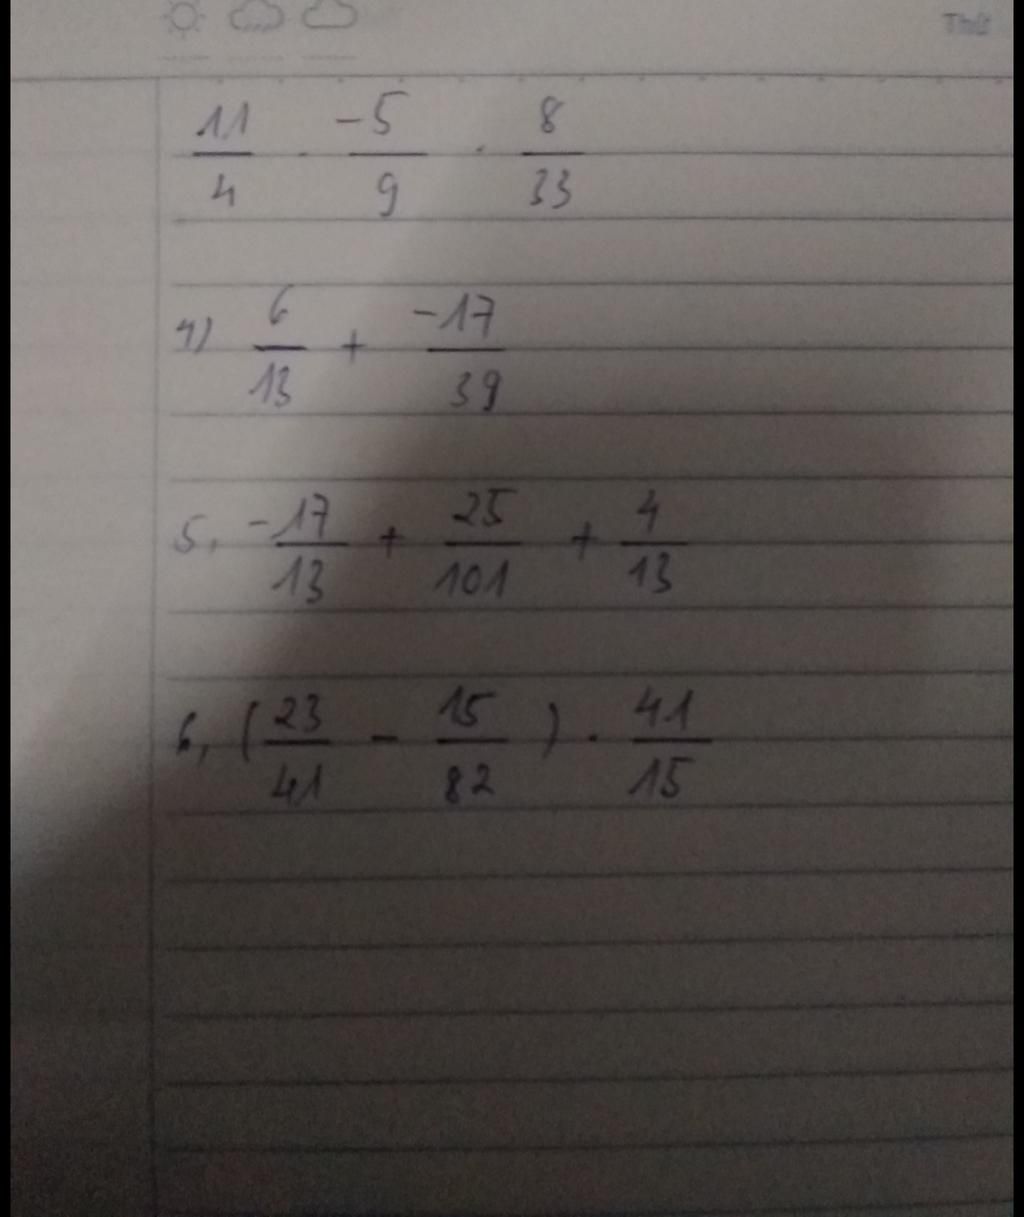 Thứ
11/4 · -5/9 · 8/33
4) 6/13 + -17/39
5, -17/13 + 25/101 + 4/13
6, (23/41 - 15/82) · 41/15